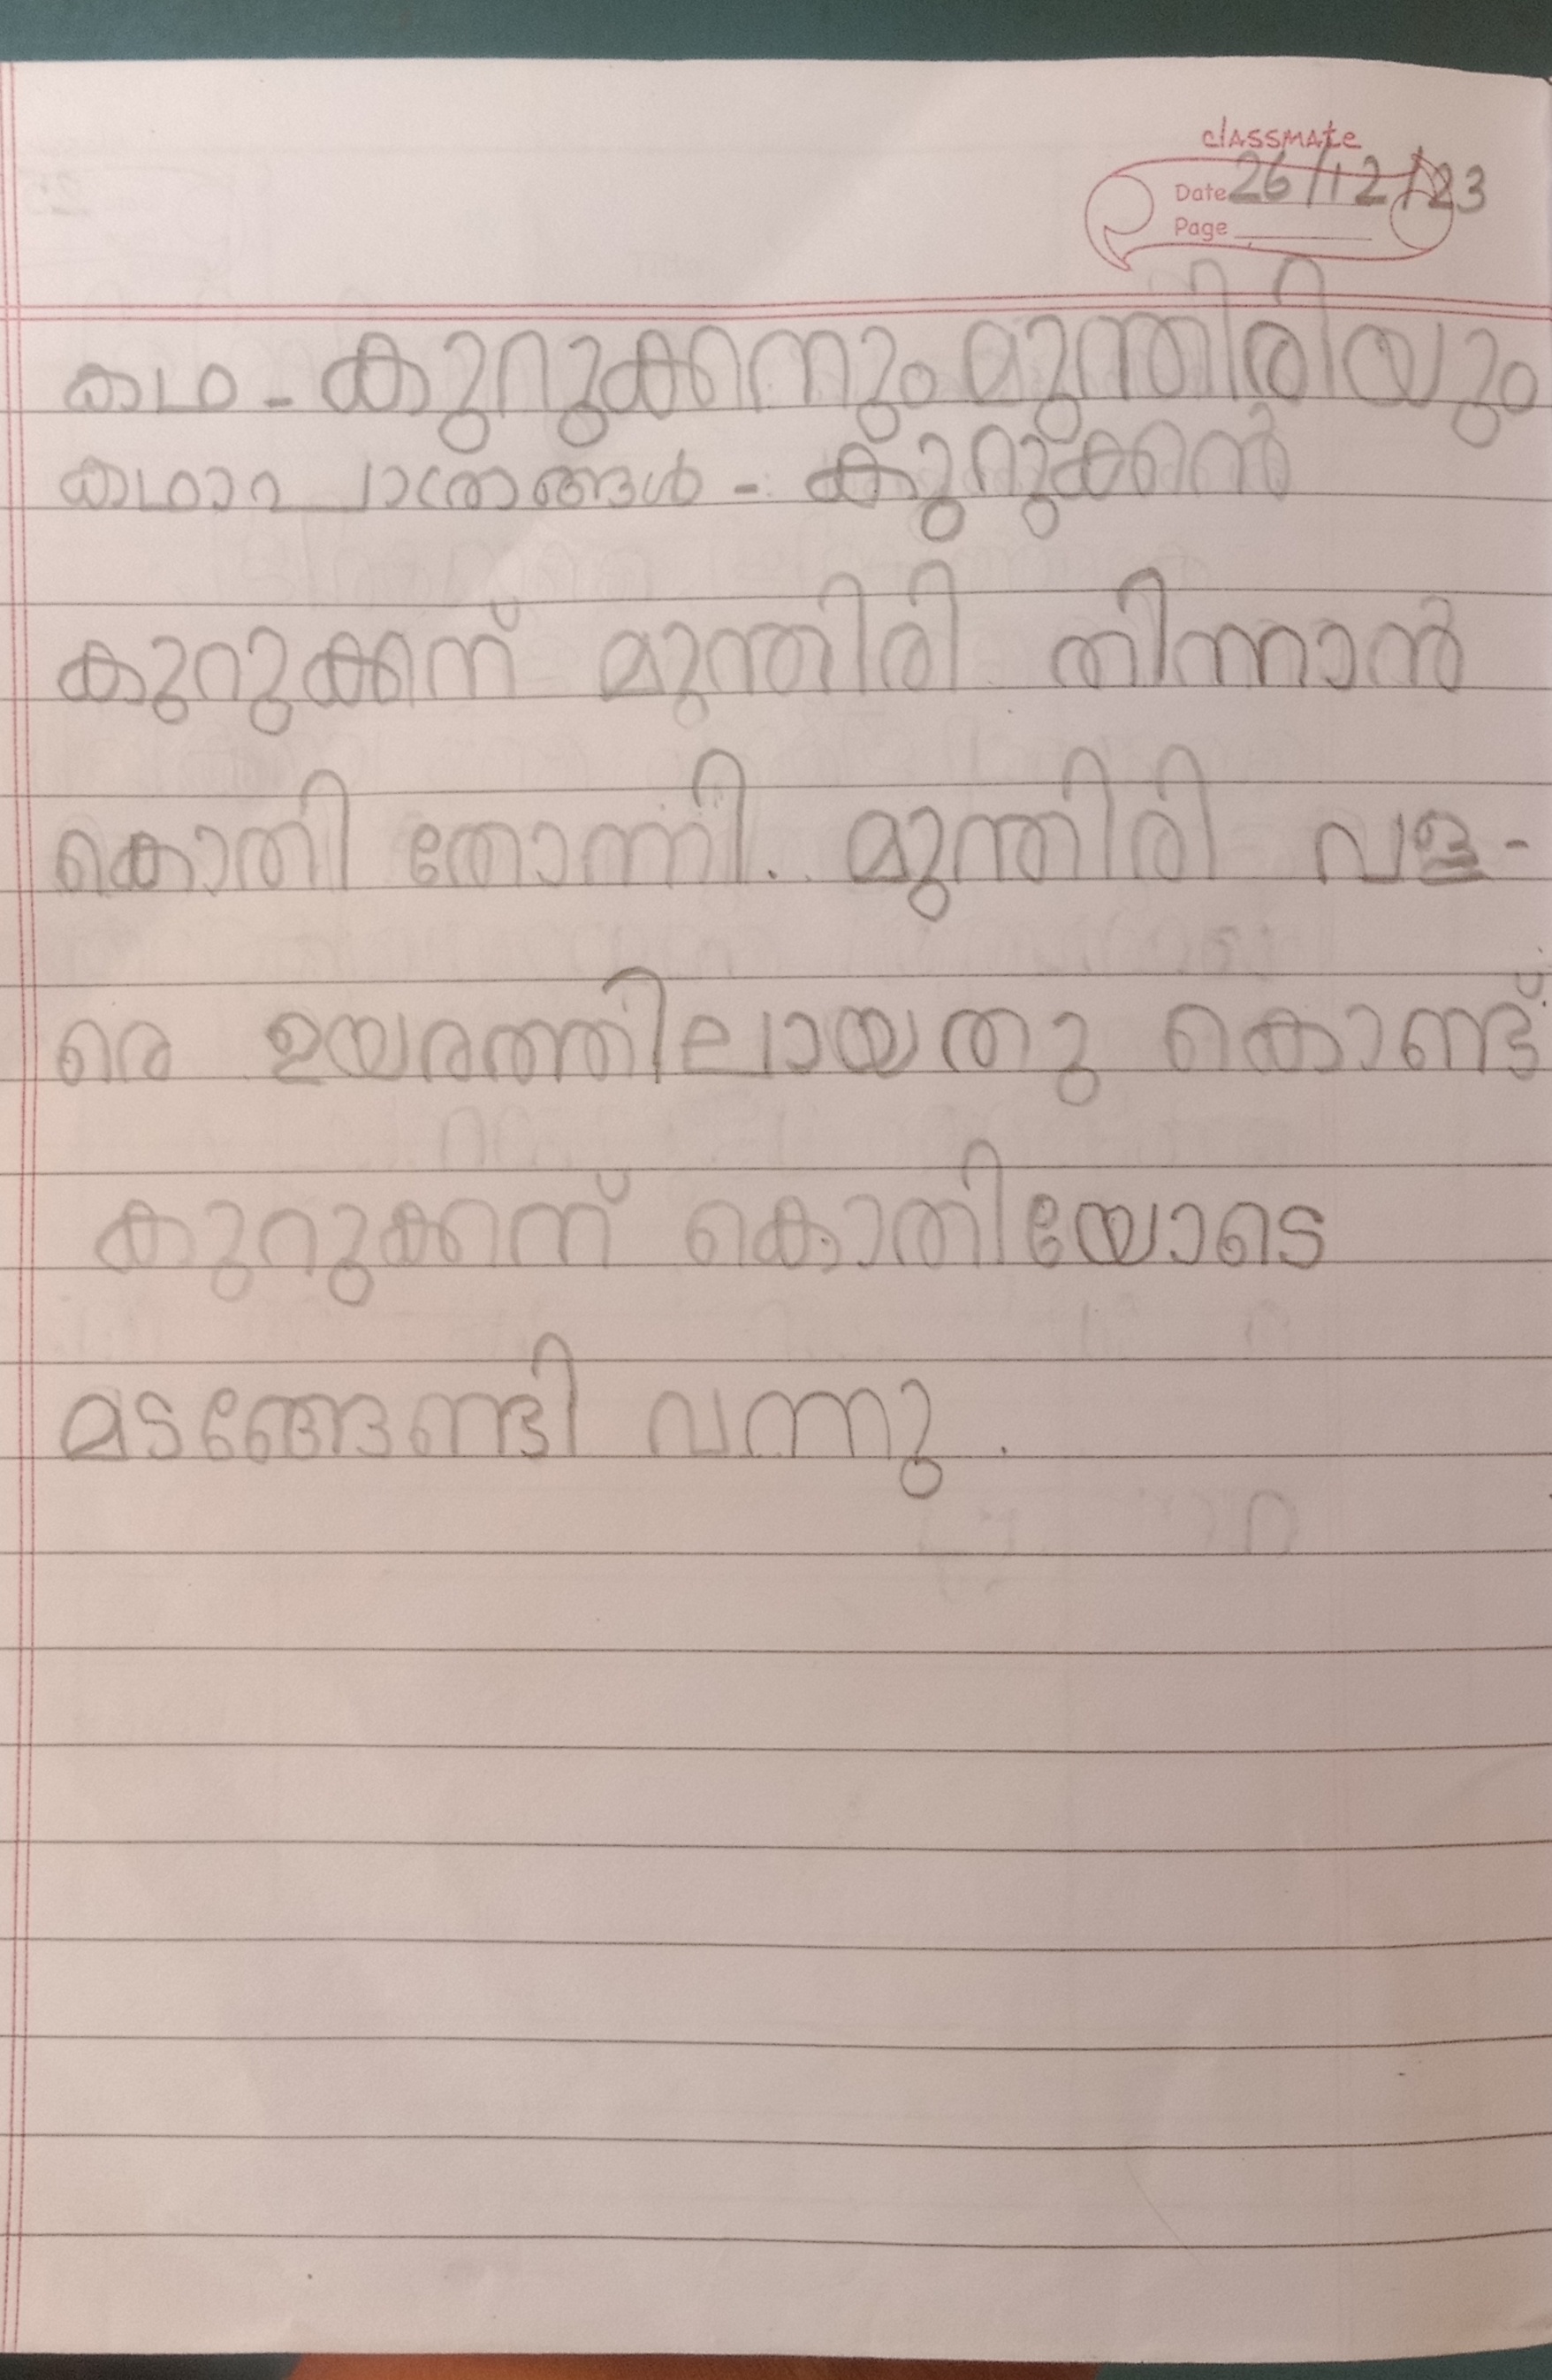 classmate
Date 26/12/23
Page
കഥ - കുറുക്കനും മുന്തിരിയും
കഥാപാത്രങ്ങൾ - കുറുക്കൻ
കുറുക്കന് മുന്തിരി തിന്നാൻ
കൊതി തോന്നി. മുന്തിരി വള-
രെ ഉയരത്തിലായതു കൊണ്ട്
കുറുക്കന് കൊതിയോടെ
മടങ്ങേണ്ടി വന്നു.